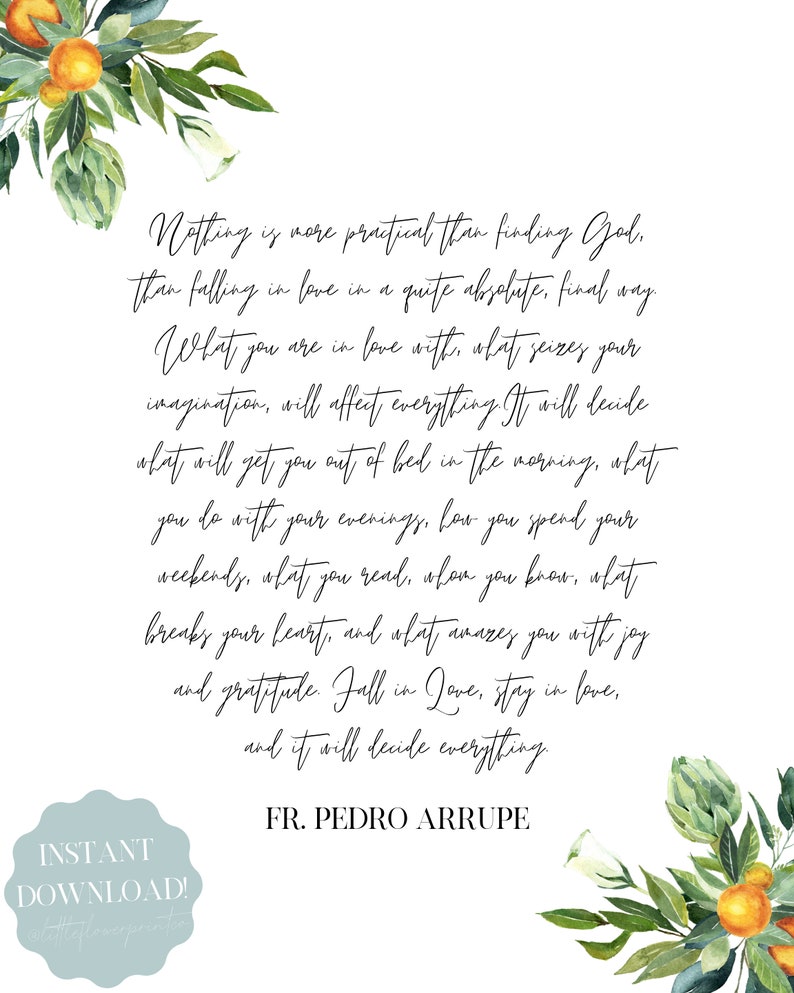 Nothing is more practical than finding God,
than falling in love in a quite absolute, final way.
What you are in love with, what seizes your
imagination, will affect everything.It will decide
what will get you out of bed in the morning, what
you do with your evenings, how you spend your
weekends, what you read, whom you know, what
breaks your heart, and what amazes you with joy
and gratitude. Fall in Love, stay in love,
and it will decide everything.
FR. PEDRO ARRUPE
INSTANT
DOWNLOAD!